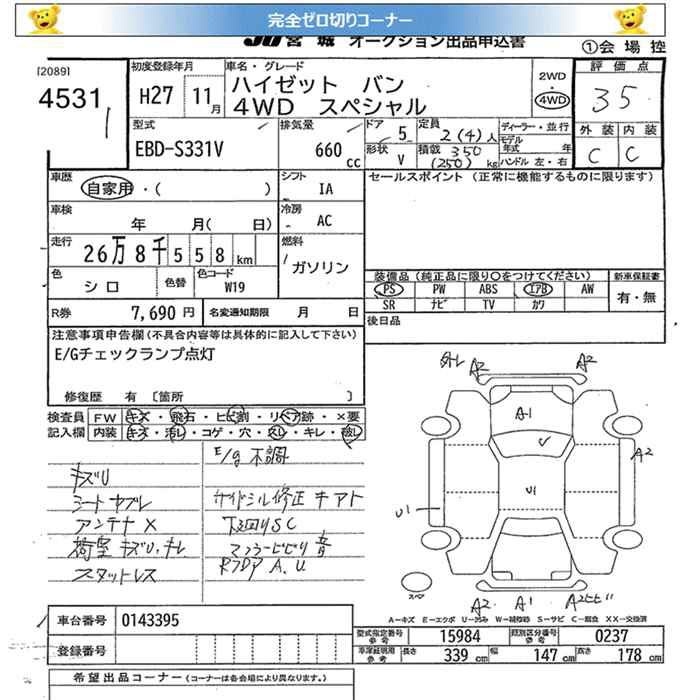 完全ゼロ切りコーナー
JU 宮城 オークション出品申込書
①会場控
[2089]
4531
1
初度登録年月
H27 11月
車名・グレード
ハイゼット バン
4WD スペシャル
2WD
4WD
評価点
35
型式
EBD-S331V
排気量
660 cc
ドア 5
形状 V
定員 2(4)人
積載 350 (250) kg
ディーラー・並行
モデル年式 年
ハンドル 左・右
外装 内装
C C
車歴
自家用・( )
シフト
IA
セールスポイント (正常に機能するものに限ります)
車検
年 月( 日)
冷房
AC
走行
26万8千558km
燃料
ガソリン
色
シロ
色替
色コード
W19
装備品(純正品に限り○をつけてください)
新車保証書
PS PW ABS エアB AW
SR ナビ TV カワ
有・無
R券 7,690円
名変通知期限 月 日
後日品
注意事項申告欄(不具合内容等は具体的に記入して下さい)
E/Gチェックランプ点灯
修復歴 有 〔箇所 〕
検査員
記入欄
FW キズ・飛石・ヒビ割・リペア跡・×要
内装 キズ・汚レ・コゲ・穴・スレ・キレ・破レ
E/g 不調
キズU
シートヤブレ
サイドシル修正キアト
アンテナ X
下回りSC
荷室キズU,キレ
マフラービビリ音
スタットレス
RフDア A.U
外レ
A2 A2
A1
U
A2
U1
U1
スペア
A2 A1 A2ヒビ
A-キズ E-エクボ U-凹み W-補修跡 S-サビ C-腐食 XX-交換済
車台番号 0143395
型式指定番号 参考 15984
類別区分番号 参考 0237
登録番号
車庫証明用 参考
長さ 339cm
幅 147cm
高さ 178cm
希望出品コーナー(コーナーは各会場により異なります。)